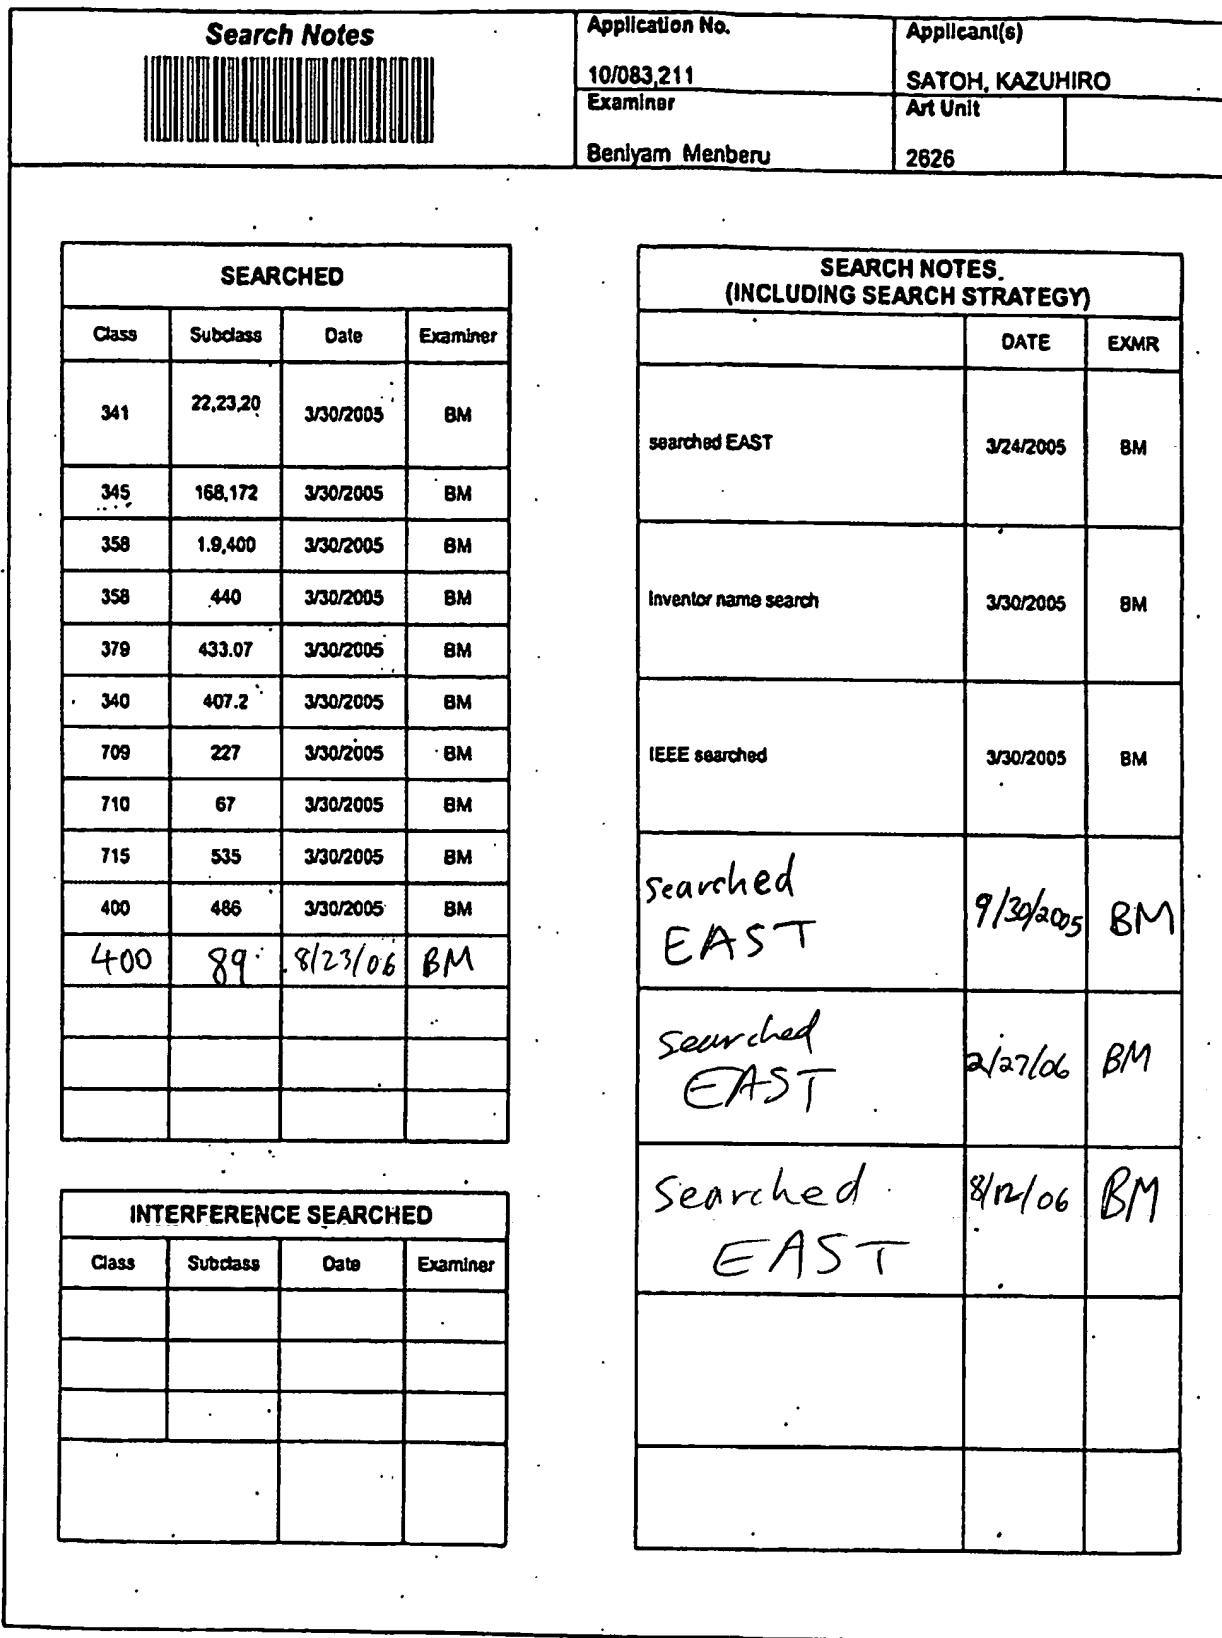 Search Notes
Application No.
10/083,211
Applicant(s)
SATOH, KAZUHIRO
Examiner
Beniyam Menberu
Art Unit
2626
SEARCHED
Class Subclass Date Examiner
341 22,23,20 3/30/2005 BM
345 168,172 3/30/2005 BM
358 1.9,400 3/30/2005 BM
358 440 3/30/2005 BM
379 433.07 3/30/2005 BM
340 407.2 3/30/2005 BM
709 227 3/30/2005 BM
710 67 3/30/2005 BM
715 535 3/30/2005 BM
400 486 3/30/2005 BM
400 89 8/23/06 BM
INTERFERENCE SEARCHED
Class Subclass Date Examiner
SEARCH NOTES
(INCLUDING SEARCH STRATEGY)
DATE EXMR
searched EAST 3/24/2005 BM
Inventor name search 3/30/2005 BM
IEEE searched 3/30/2005 BM
searched
EAST 9/30/2005 BM
searched
EAST 2/27/06 BM
Searched
EAST 8/12/06 BM